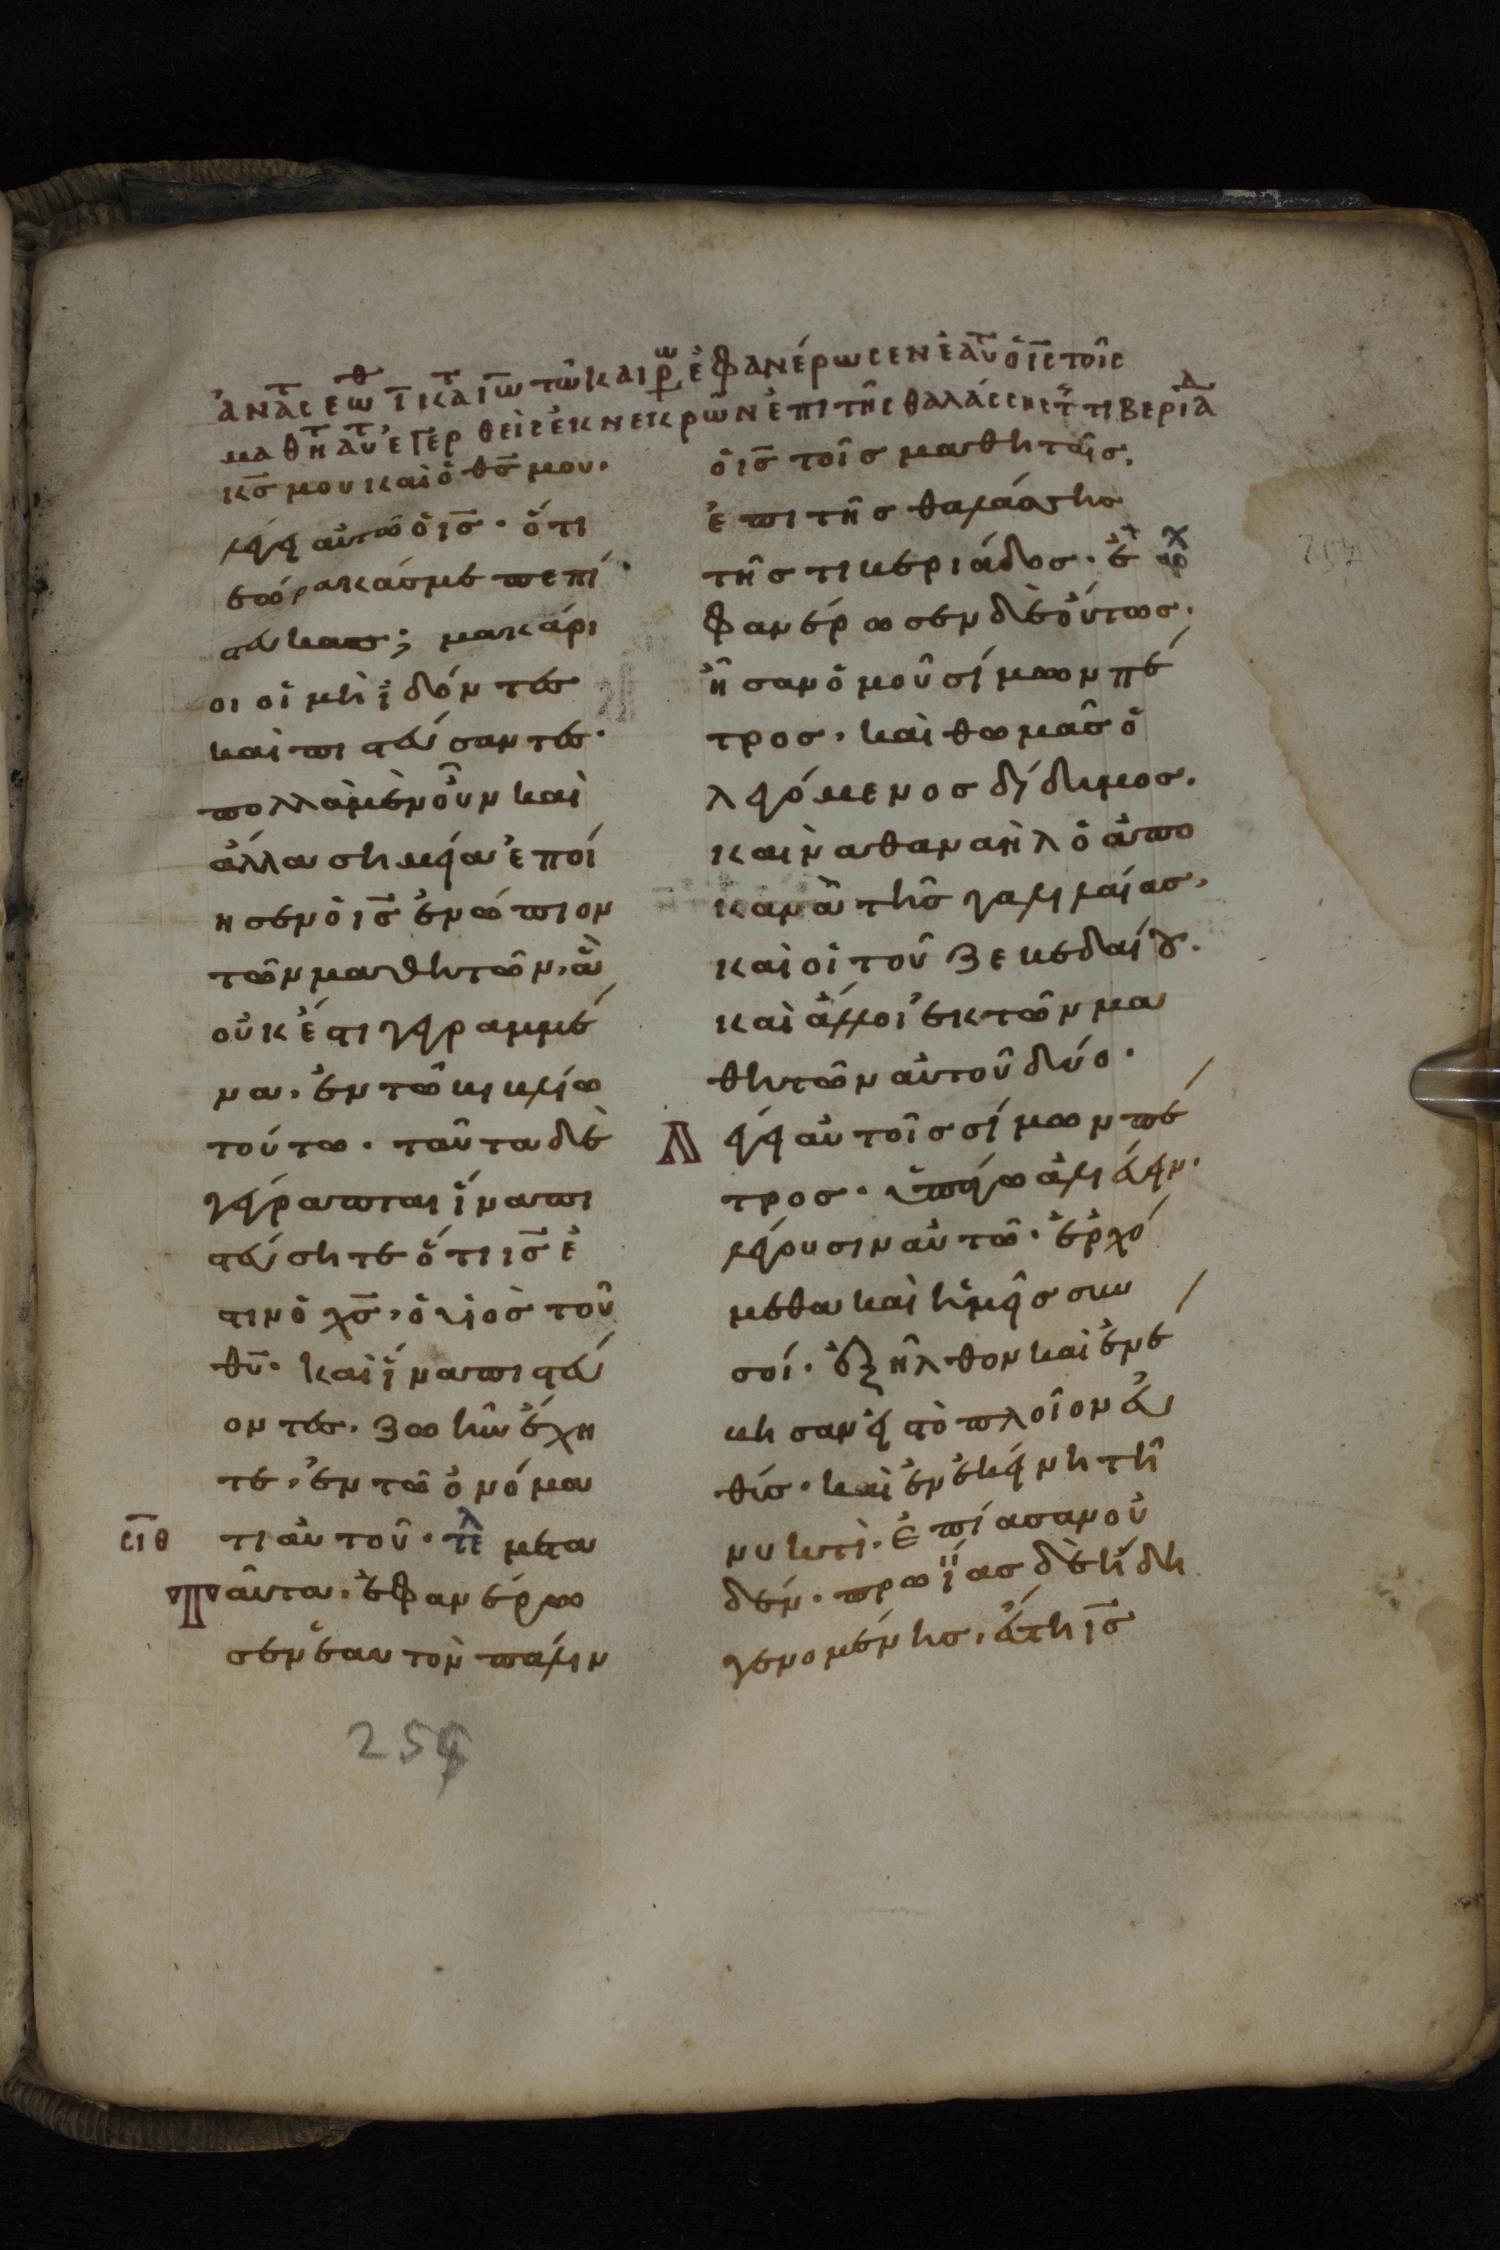 ἀναστ εωθ ι κατ ιω τῶ καιρῶ ἐφανέρωσεν ἑαυτ ὁ ις τοῖς
μαθητ αὐτ ἐγερθεὶς ἐκ νεκρῶν ἐπι τῆς θαλάσσης τ τιβεριαδ
κς μου καὶ ὁ θς μου·
λέγει αὐτῶ ὁ ις· ὅτι
ἑώρακάς με πεπί
στευκασ; μακάρι
οι οἱ μὴ ἰδόντες
καὶ πιστεύσαντες·
πολλὰ μὲν οὖν καὶ
ἄλλα σημεῖα ἐποί
ησεν ὁ ις ἐνώπιον
τῶν μαθητῶν, ἃ
οὐκ ἔστι γεγραμμέ
να, ἐν τῶ βιβλίω
τούτω· ταῦτα δὲ
γέγραπται ἵνα πι
στεύσητε ὅτι ις ἐ
στιν ὁ χς, ὁ υἱὸς τοῦ
θυ· καὶ ἵνα πιστεύ
οντες, ζωὴν ἔχη
τε, ἐν τῶ ὀνόμα
σιθ τι αὐτοῦ· τελ μετα
Ταῦτα, ἐφανέρω
σεν ἑαυτὸν πάλιν
ὁ ις τοῖς μαθηταῖς,
ἐπι τῆς θαλάσσης
τῆς τιβεριάδος· ἐ
φανέρωσεν δὲ οὕτως·
ἦσαν ὁμοῦ σίμων πέ
τρος, καὶ θωμᾶς ὁ
λεγόμενος δίδυμος,
καὶ ναθαναὴλ ὁ ἀπο
κανᾶ τῆς γαλιλαίας,
καὶ οἱ τοῦ ζεβεδαίου·
καὶ ἄλλοι ἐκ τῶν μα
θητῶν αὐτοῦ δύο·
Λέγει αὐτοῖς σίμων πέ
τρος· ὑπάγω ἁλιεύειν·
λέγουσιν αὐτῶ· ἐρχό
μεθα καὶ ἡμεῖς συν
σοί· ἐξῆλθον καὶ ἐνέ
βησαν εἰς τὸ πλοῖον εὐ
θύς· καὶ ἐν ἐκείνη τῆ
νυκτὶ· ἐπίασαν οὐ
δέν· πρωΐας δὲ ἤδη
γενομένης, ἔστη ις
254